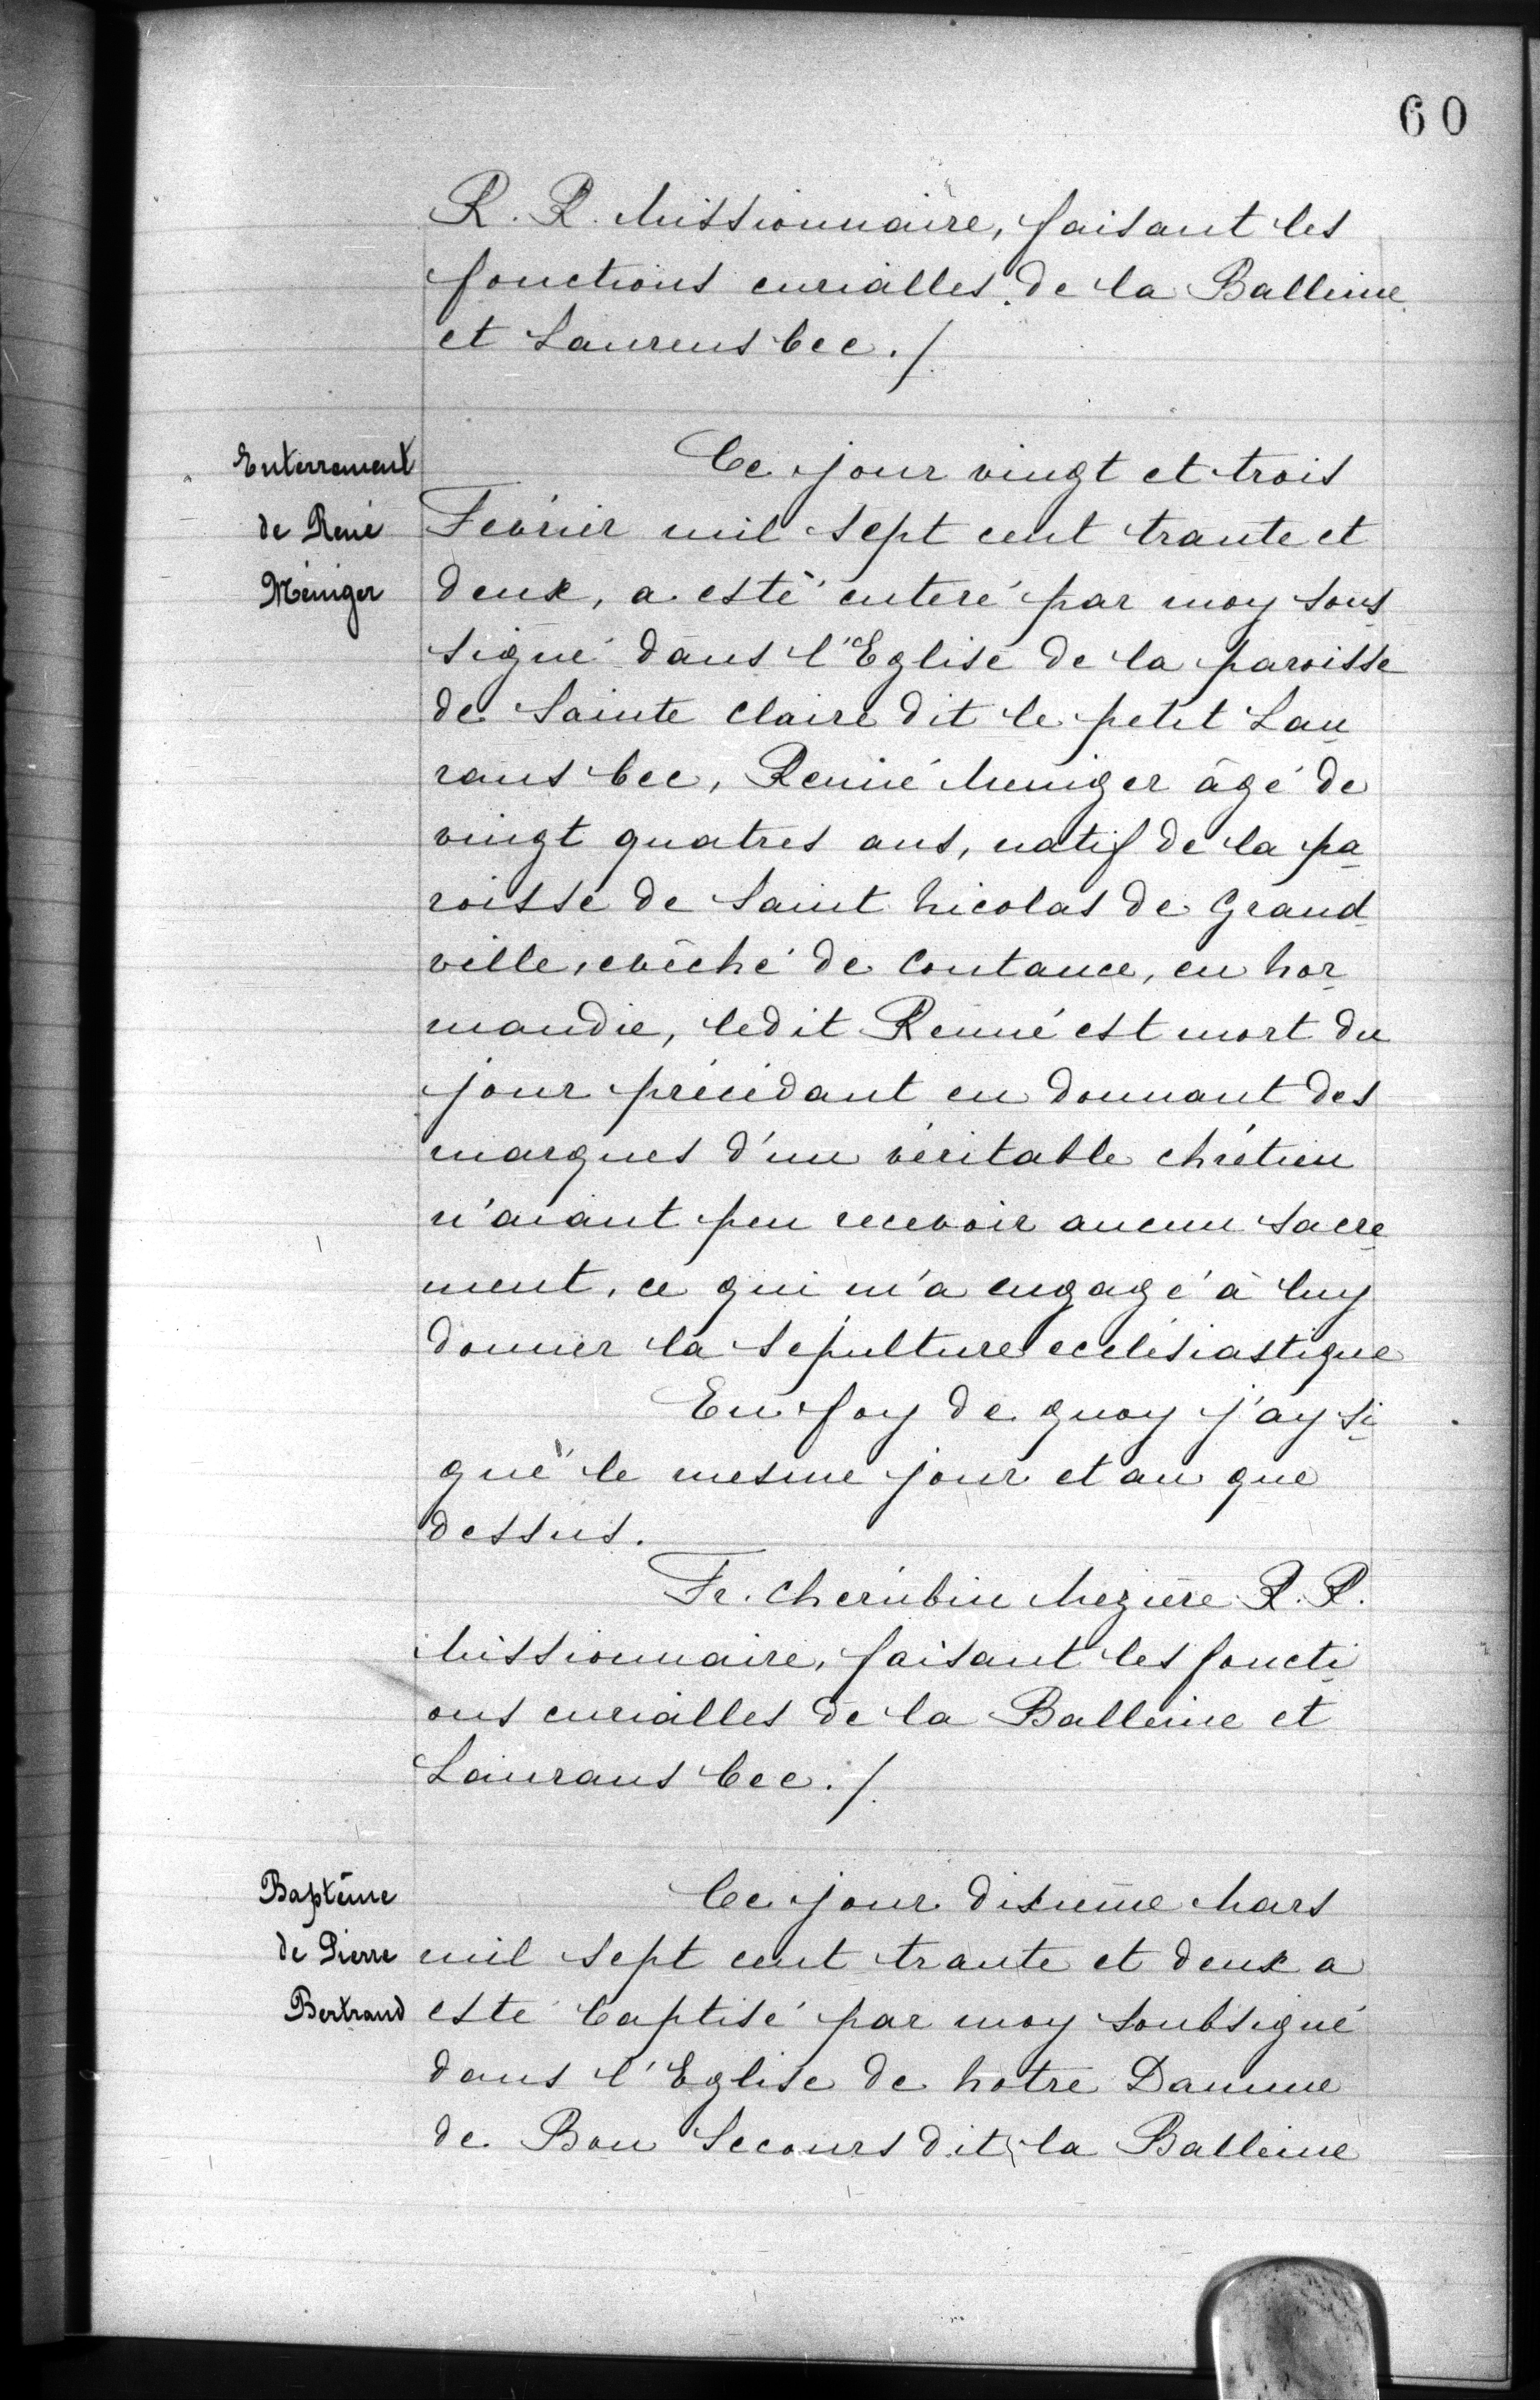 60
R. R. Missionnaire, faisant les
fonctions curialles de la Balleine
et Laurens bec ./.
Enterrement
de René
Méniger
Ce jour vingt et trois
Fevrier mil sept cent trante et
deux, a esté enteré par moy sous
signé dans l'Eglise de la paroisse
de Sainte Claire dit le petit Lau
rans bec, Renné Meniger âgé de
vingt quatres ans, natif de la pa
roisse de Saint Nicolas de Grand
ville, evêché de Coutance, en Nor
mandie, ledit Renné est mort du
jour précédant en donnant des
marques d'un véritable chrétien
n'aiant peu recevoir aucun sacre
ment, ce qui m'a engagé à luy
donner la sepulture eclésiastique
En foy de quoy j'ay si
gné le mesme jour et an que
dessus.
Fr. Cherubin Mezière R. R.
Missionnaire, faisant les foncti
ons curialles de la Balleine et
Laurans bec ./.
Baptême
de Pierre
Bertrand
Ce jour dixième Mars
mil sept cent trante et deux a
esté baptisé par moy soubsigné
dans l'Eglise de Notre Damme
de Bon Secours dit la Balleine